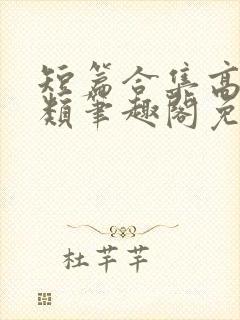 短篇合集高
類筆趣閣免
杜芊芊